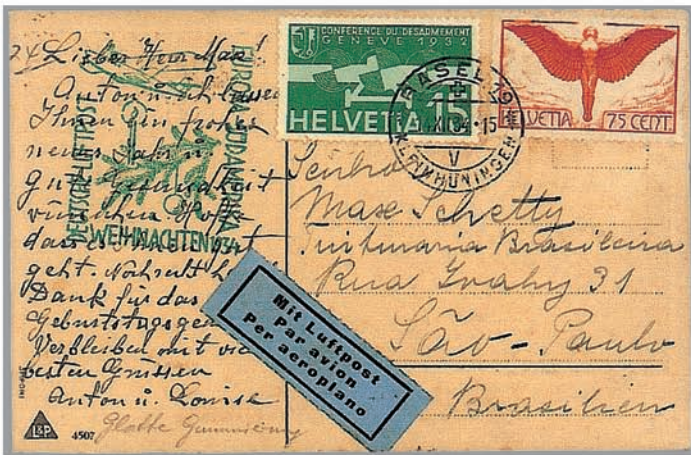 24
Lieber Herr Max!
Anton u. ich wünschen
Ihnen ein frohes
neues Jahr u.
gute Gesundheit
wünschen
geht.
Dank für das
Geburtstags
Verbleiben mit
besten Grüssen
Anton u. Louise
DEUTSCHE LUFTPOST
EUROPA SÜDAMERIKA
WEIHNACHTEN 1934
CONFERENCE DU DESARMEMENT
GENEVE 1932
15
HELVETIA
HELVETIA 75 CENT.
BASEL 19
XII 34 - 15
V
KLEINHÜNINGEN
Senhor
Max Schetty
Tinturaria Brasileira
Rua Ivahy 31
São-Paulo
Brasilien
Mit Luftpost
Par avion
Per aeroplano
L&P
4507